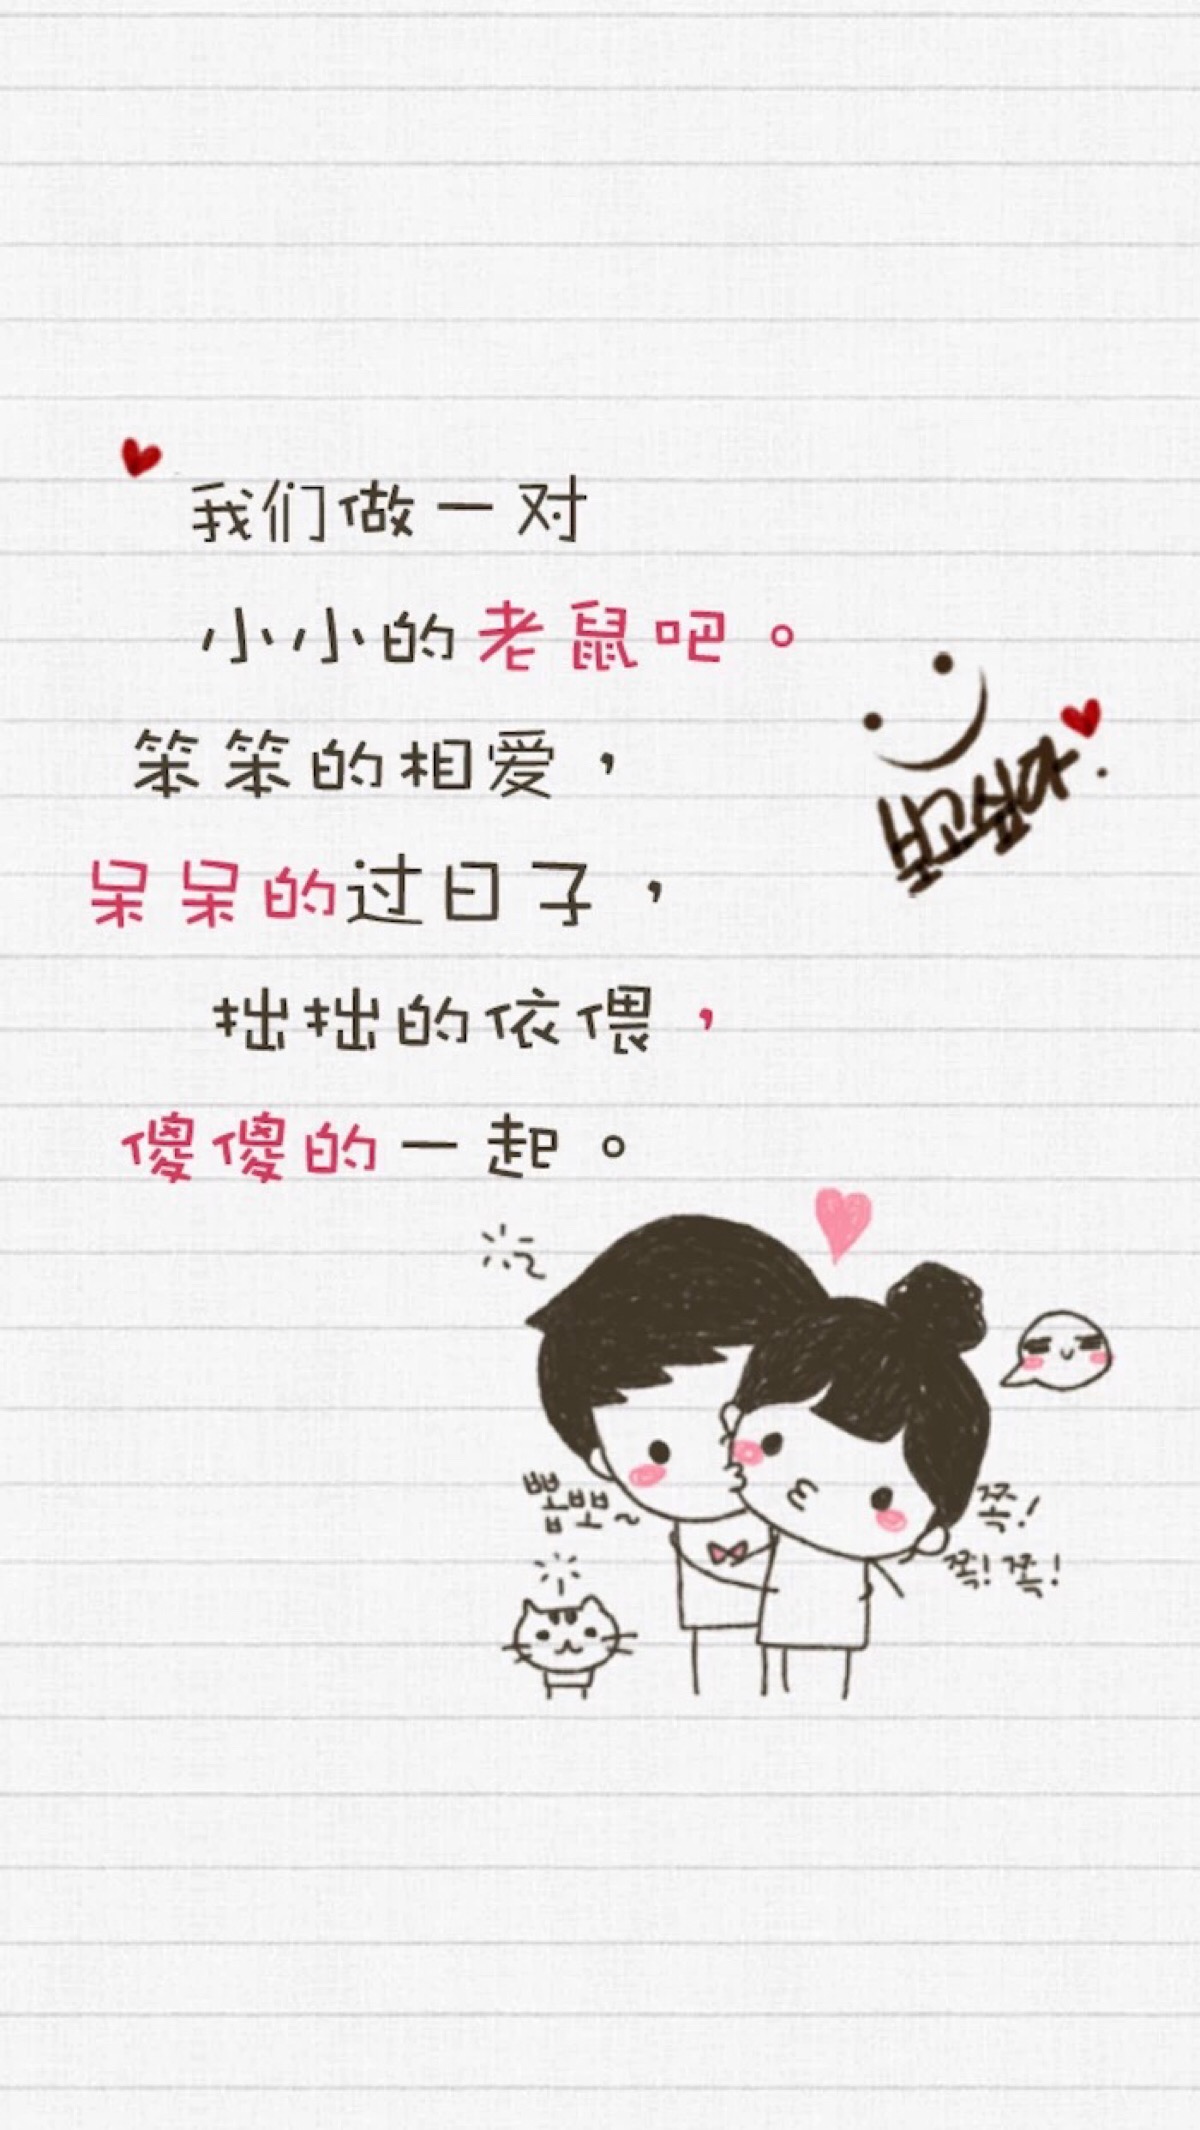 我们做一对
小小的老鼠吧。
笨笨的相爱，
呆呆的过日子，
拙拙的依偎，
傻傻的一起。
보고싶다.
뽀뽀~
쪽!
쪽! 쪽!